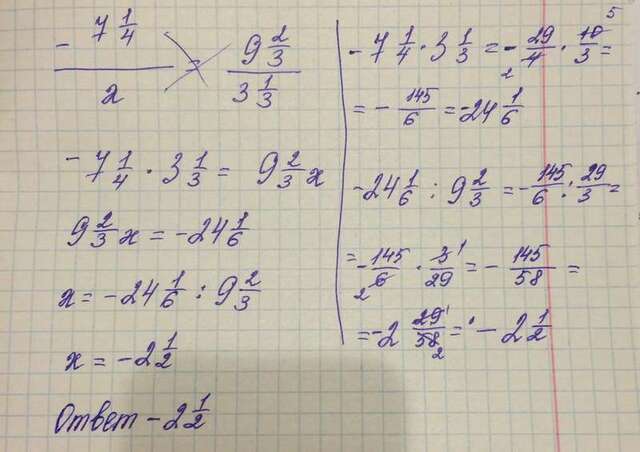 - 7 1/4 / x = 9 2/3 / 3 1/3
- 7 1/4 · 3 1/3 = 9 2/3 x
9 2/3 x = -24 1/6
x = -24 1/6 : 9 2/3
x = -2 1/2
Ответ -2 1/2
-7 1/4 · 3 1/3 = - 29/4 2 · 10/3 5 =
= - 145/6 = -24 1/6
-24 1/6 : 9 2/3 = - 145/6 : 29/3 =
= - 145/6 2 · 3/29 1 = - 145/58 =
= -2 29/58 1 2 = - 2 1/2